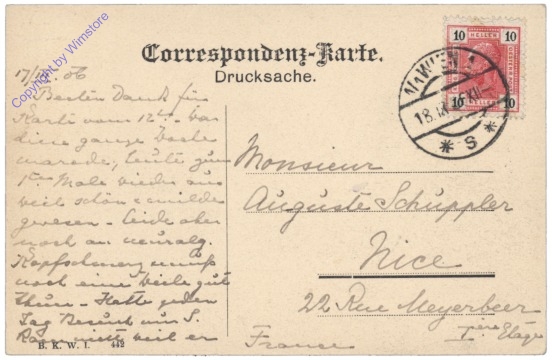 Copyright by Wimstore
Correspondenz-Karte.
Drucksache.
10 HELLER 10
10 HELLER 10
WIEN 1
18.
S
17/ 06
Besten Dank für
Karte vom 12ten. War
diese ganze Woche
marode, heute zum
1ten Male wieder aus
weil schön & mildes
gewesen - leide aber
noch an neuralg.
Kopfschmerz muß
noch eine Weile gut
thun - Hatte jeden
Tag Besuch nur S.
kam nicht weil er
Monsieur
Auguste Schuppler
Nice
22 Rue Meyerbeer
Ière Etage
France
B. K. W. I. 442